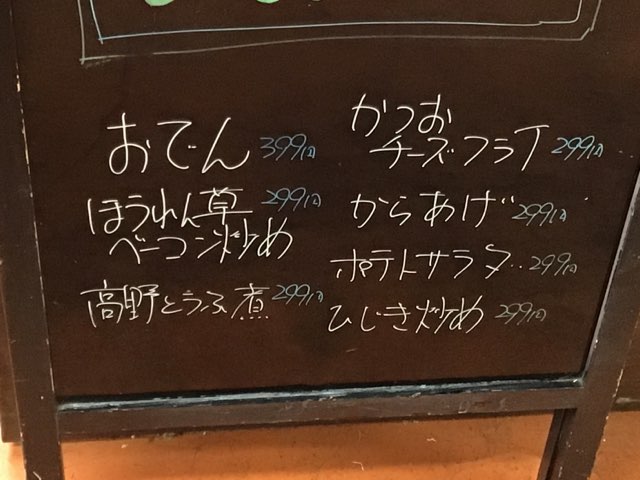 おでん 399円
ほうれん草 299円
ベーコン炒め
高野とうふ煮 299円
かつお
チーズフライ 299円
からあげ 299円
ポテトサラダ 299円
ひじき炒め 299円